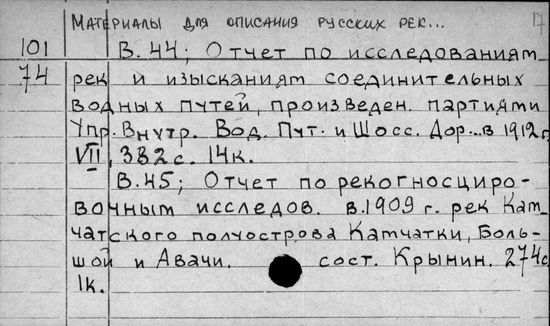 Материалы для описания русских рек... 17
101 В.44; Отчет по исследованиям
74 рек и изысканиям соединительных
водных путей, произведен. партиями
Упр. Внутр. Вод. Пут. и Шосс. Дор... в 1912 г.
VII, 382 с. 14 к.
В.45; Отчет по рекогносциро-
вочным исследов. в 1909 г. рек Кам-
чатского полуострова Камчатки, Боль-
шой и Авачи. сост. Крынин. 274 с
1 к.